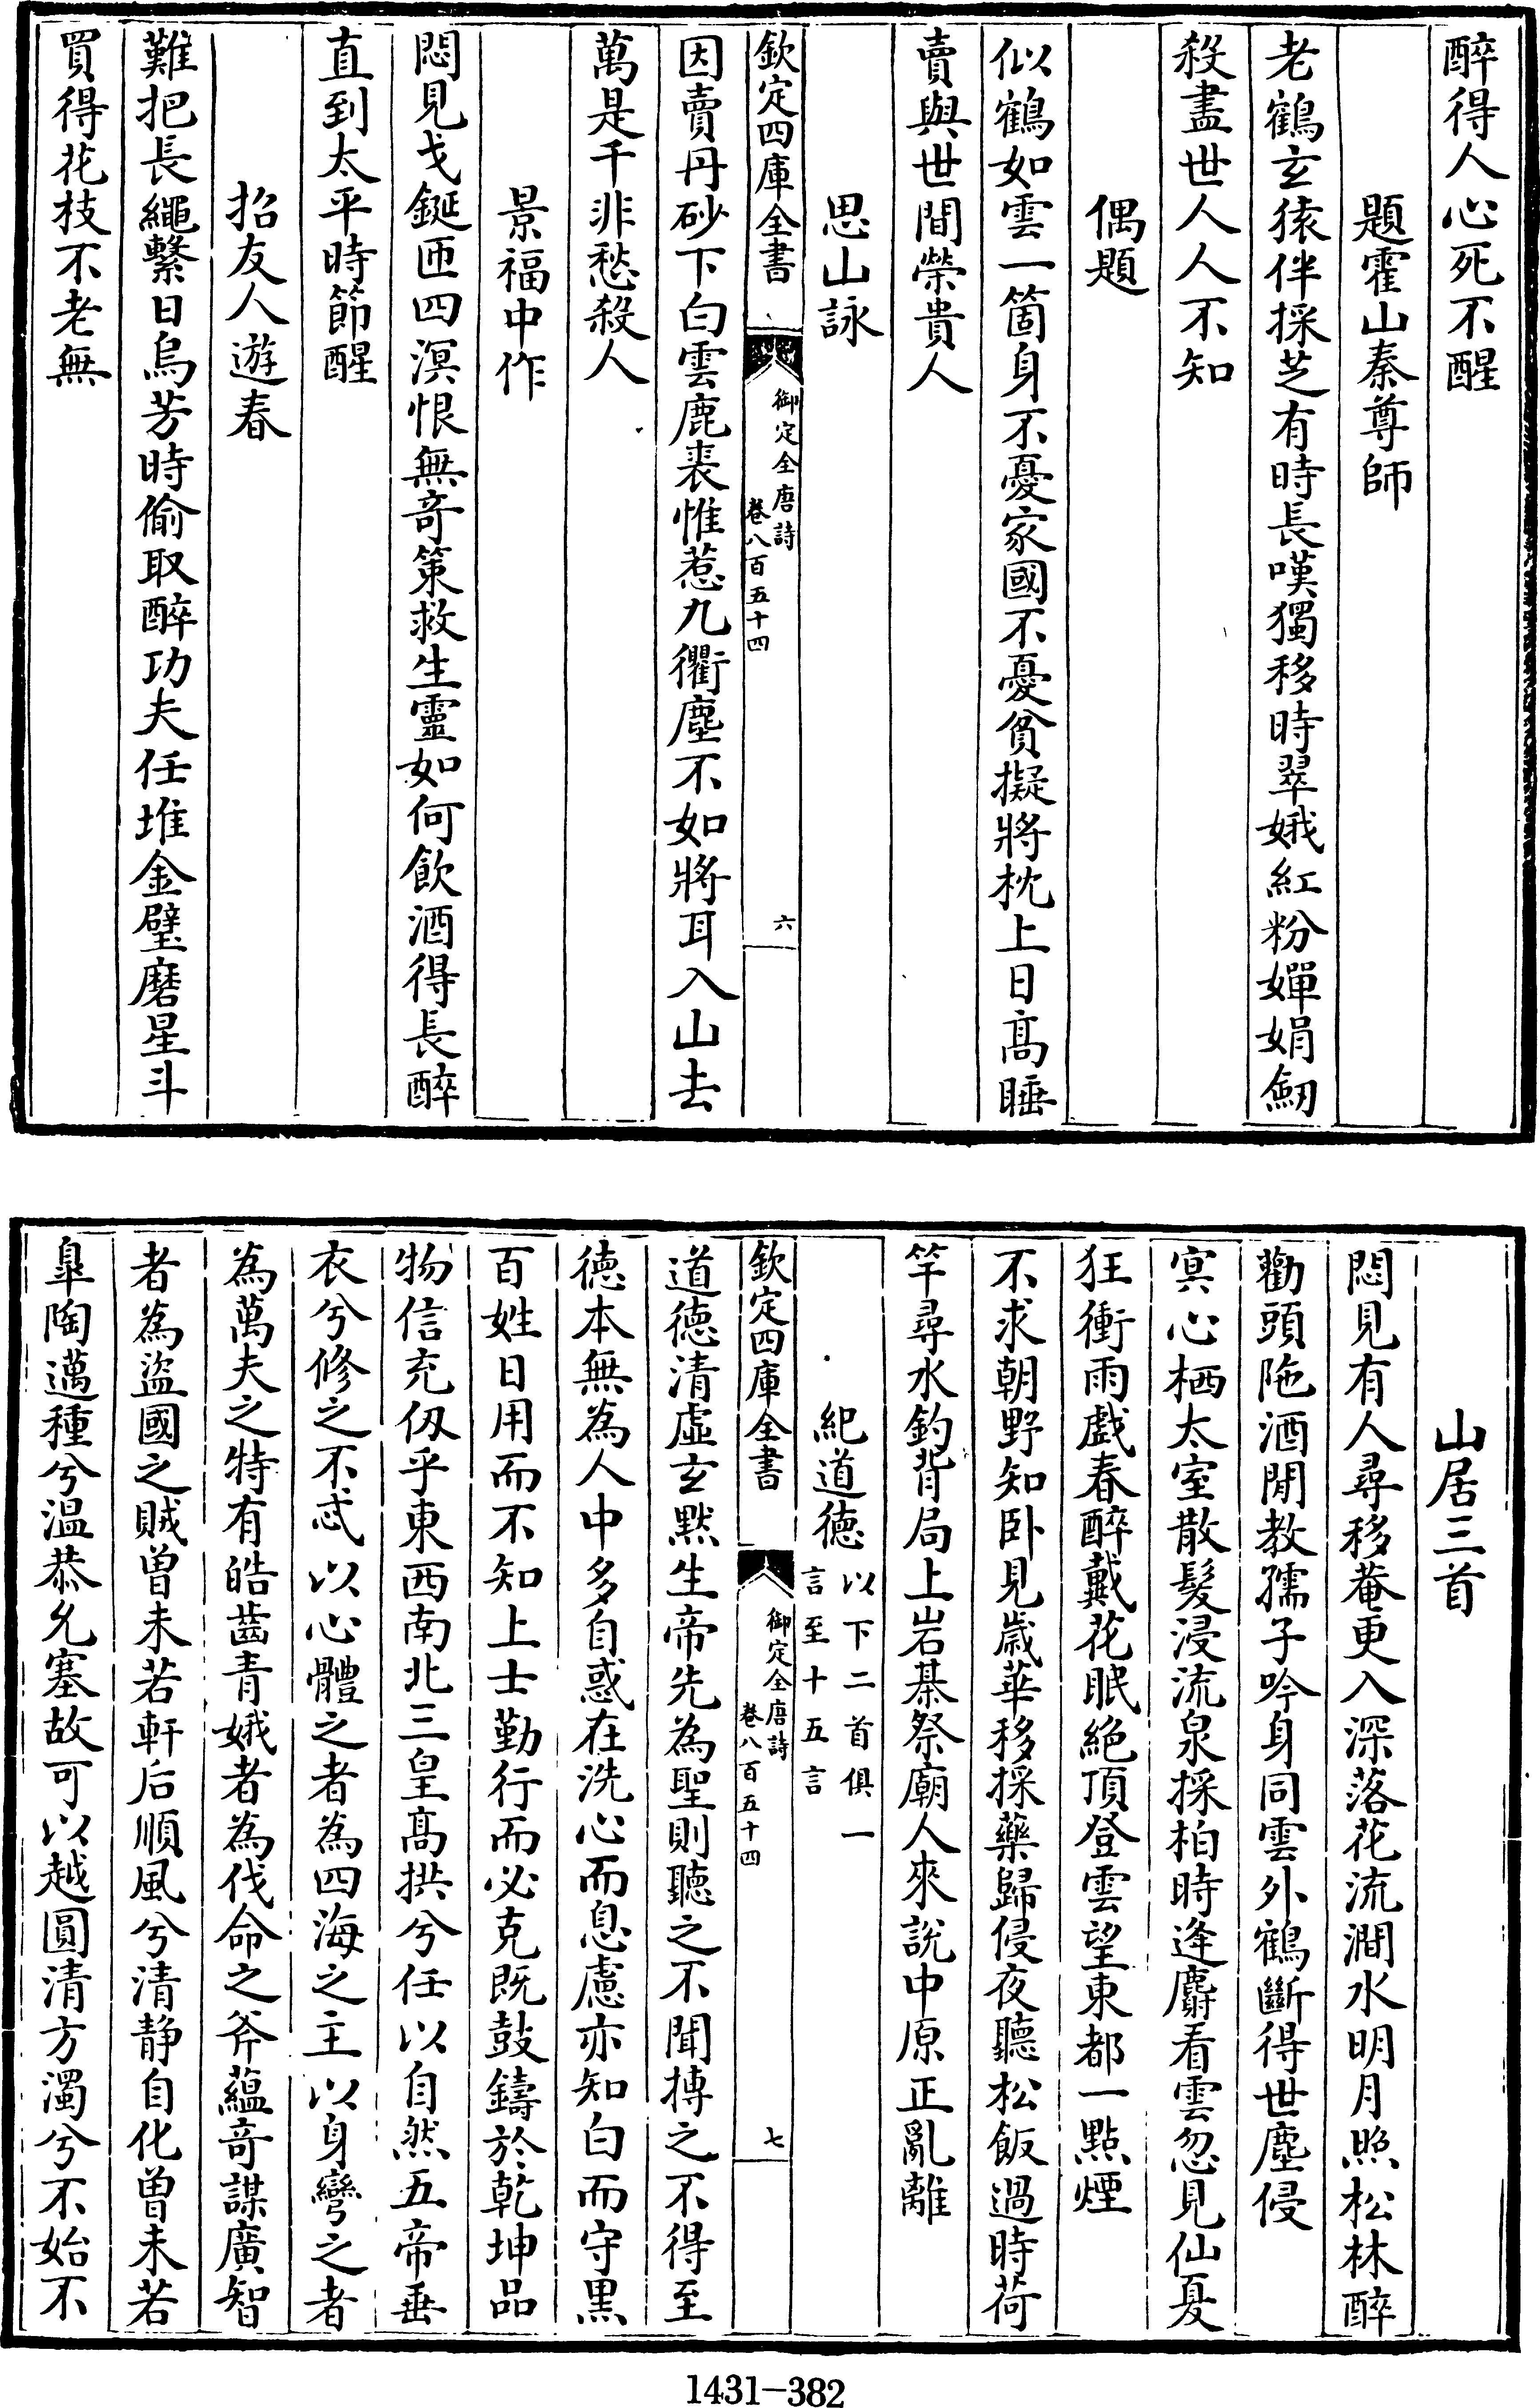 醉得人心死不醒
題霍山秦尊師
老鶴玄猿伴採芝有時長嘆獨移時翠娥紅粉嬋娟劒
殺盡世人人不知
偶題
似鶴如雲一箇身不憂家國不憂貧擬將枕上日髙睡
賣與世間榮貴人
思山詠
欽定四庫全書
御定全唐詩
卷八百五十四
六
因賣丹砂下白雲鹿裘惟惹九衢塵不如將耳入山去
萬是千非愁殺人
景福中作
悶見戈鋋匝四溟恨無竒策救生靈如何飲酒得長醉
直到太平時節醒
招友人遊春
難把長繩繫日烏芳時偷取醉功夫任堆金璧磨星斗
買得花枝不老無
山居三首
悶見有人尋移菴更入深落花流澗水明月照松林醉
勸頭陁酒閒教孺子吟身同雲外鶴斷得世塵侵
冥心栖太室散髮浸流泉採柏時逢麝看雲忽見仙夏
狂衝雨戲春醉戴花眠絶頂登雲望東都一點煙
不求朝野知卧見歲華移採藥歸侵夜聽松飯過時荷
竿尋水釣背局上岩棊祭廟人來說中原正亂離
紀道徳
以下二首俱一
言至十五言
欽定四庫全書
御定全唐詩
卷八百五十四
七
道徳清虛玄黙生帝先為聖則聽之不聞搏之不得至
徳本無為人中多自惑在洗心而息慮亦知白而守黒
百姓日用而不知上士勤行而必克既鼓鑄於乾坤品
物信充仭乎東西南北三皇髙拱兮任以自然五帝垂
衣兮修之不忒以心體之者為四海之主以身彎之者
為萬夫之特有皓齒青娥者為伐命之斧蘊竒謀廣智
者為盜國之賊曽未若軒后順風兮清静自化曽未若
臯陶邁種兮温恭允塞故可以越圓清方濁兮不始不
1431-382